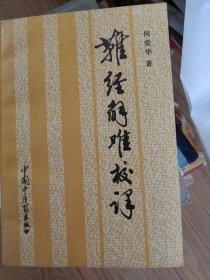 何爱华 著
难经解难校译
中国中医药出版社